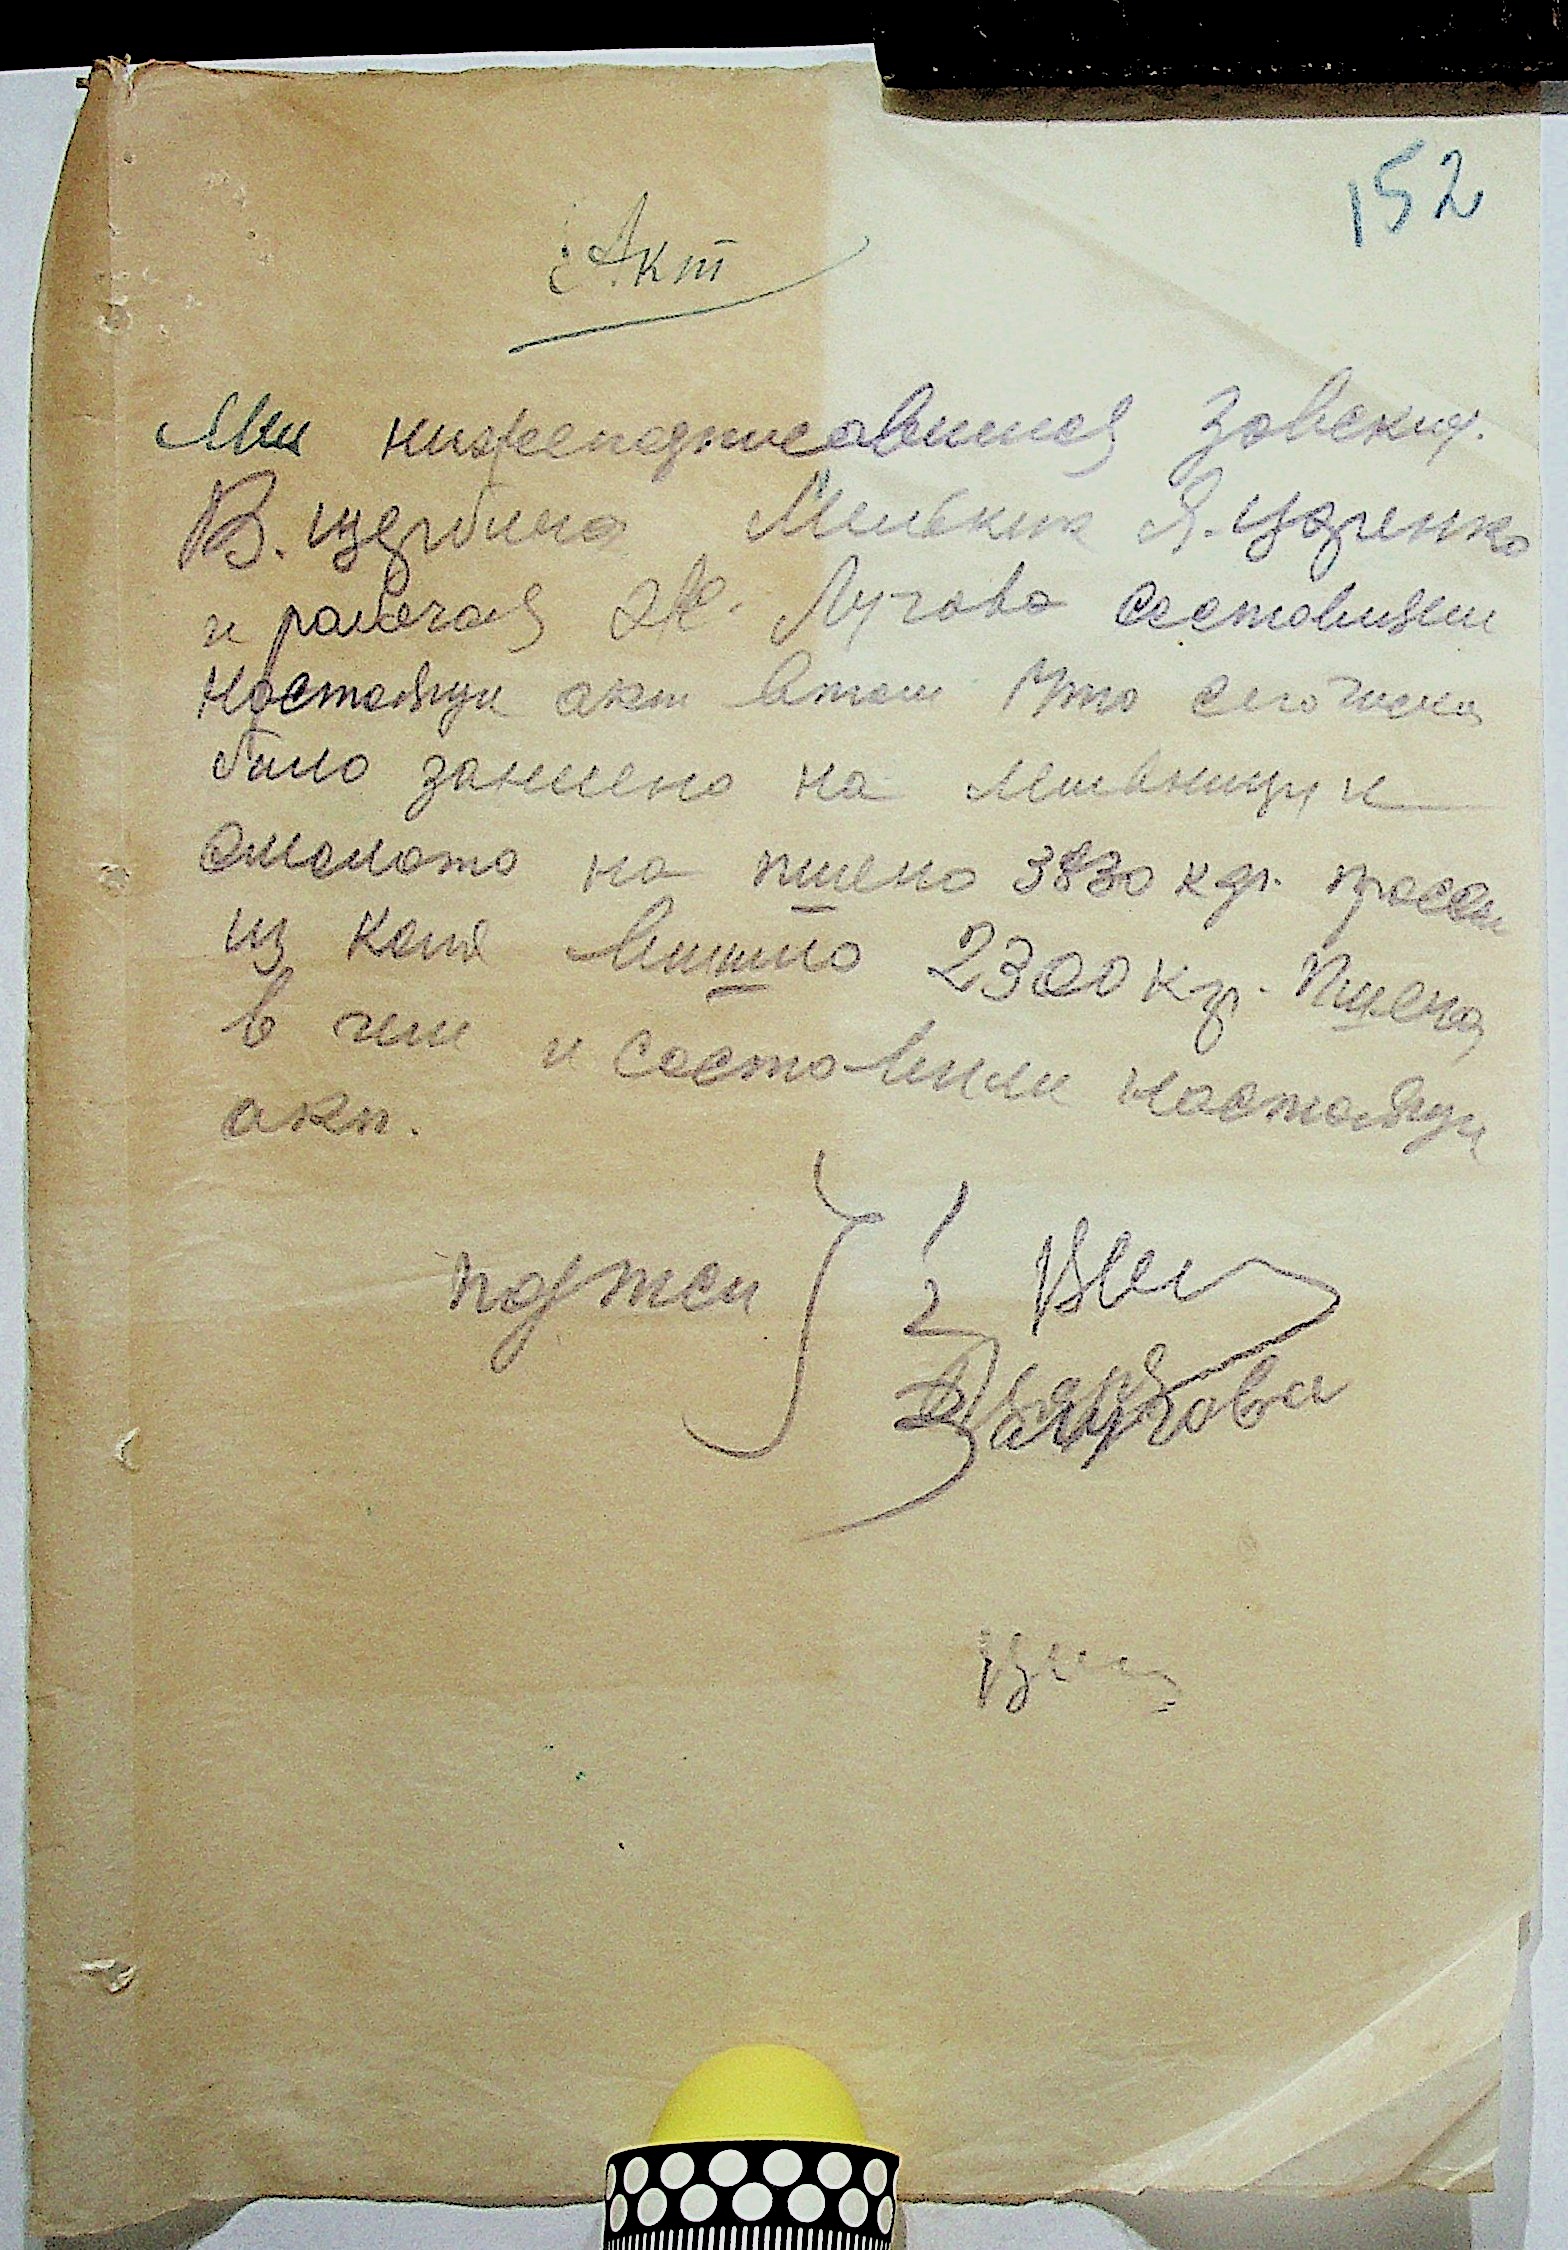 152
Акт
Ми нижеподписавшися Завскид.
В. Щербина Мельник Я. Царенко
и рабочая Ж. Лугова составили
настоящи акт втом Што
било занесено на мельницу и
смолото на пшено 3830 кгр. просса
из коня вишло 2300 кгр. пшена
в чем и составили настоящи
акт.
подписи
1
2
Лугова